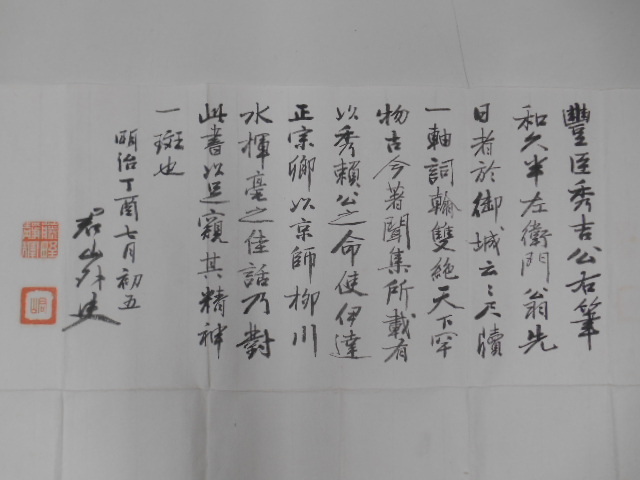 豐臣秀吉公右筆
和久半左衛門翁先
日者於御城云々尺牘
一軸詞翰雙絶天下罕
物古今著聞集所載有
以秀頼公之命使伊達
正宗卿以京師柳川
水揮毫之佳話乃對
此書以足窺其精神
一斑也
明治丁酉七月初五
君山外史